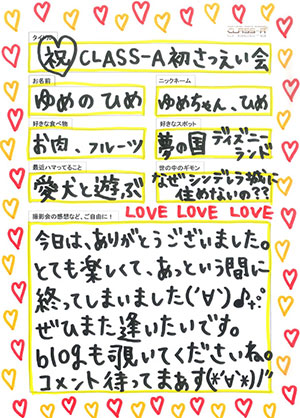 CLASS-A
タイトル
祝 CLASS-A 初さつえい会
お名前
ゆめのひめ
ニックネーム
ゆめちゃん、ひめ
好きな食べ物
お肉、フルーツ
好きなスポット
夢の国ディズニー
ランド
最近ハマってること
愛犬と遊ぶ
世の中のギモン
なぜ、シンデレラ城に
住めないの??
撮影会の感想など、ご自由に!
LOVE LOVE LOVE
今日は、ありがとうございました。
とても楽しくて、あっという間に
終ってしまいました('∀')♪+゜
ぜひまた逢いたいです。
blogも覗いてくださいね。
コメント待ってまぁす(*'∀'*)ﾉ"